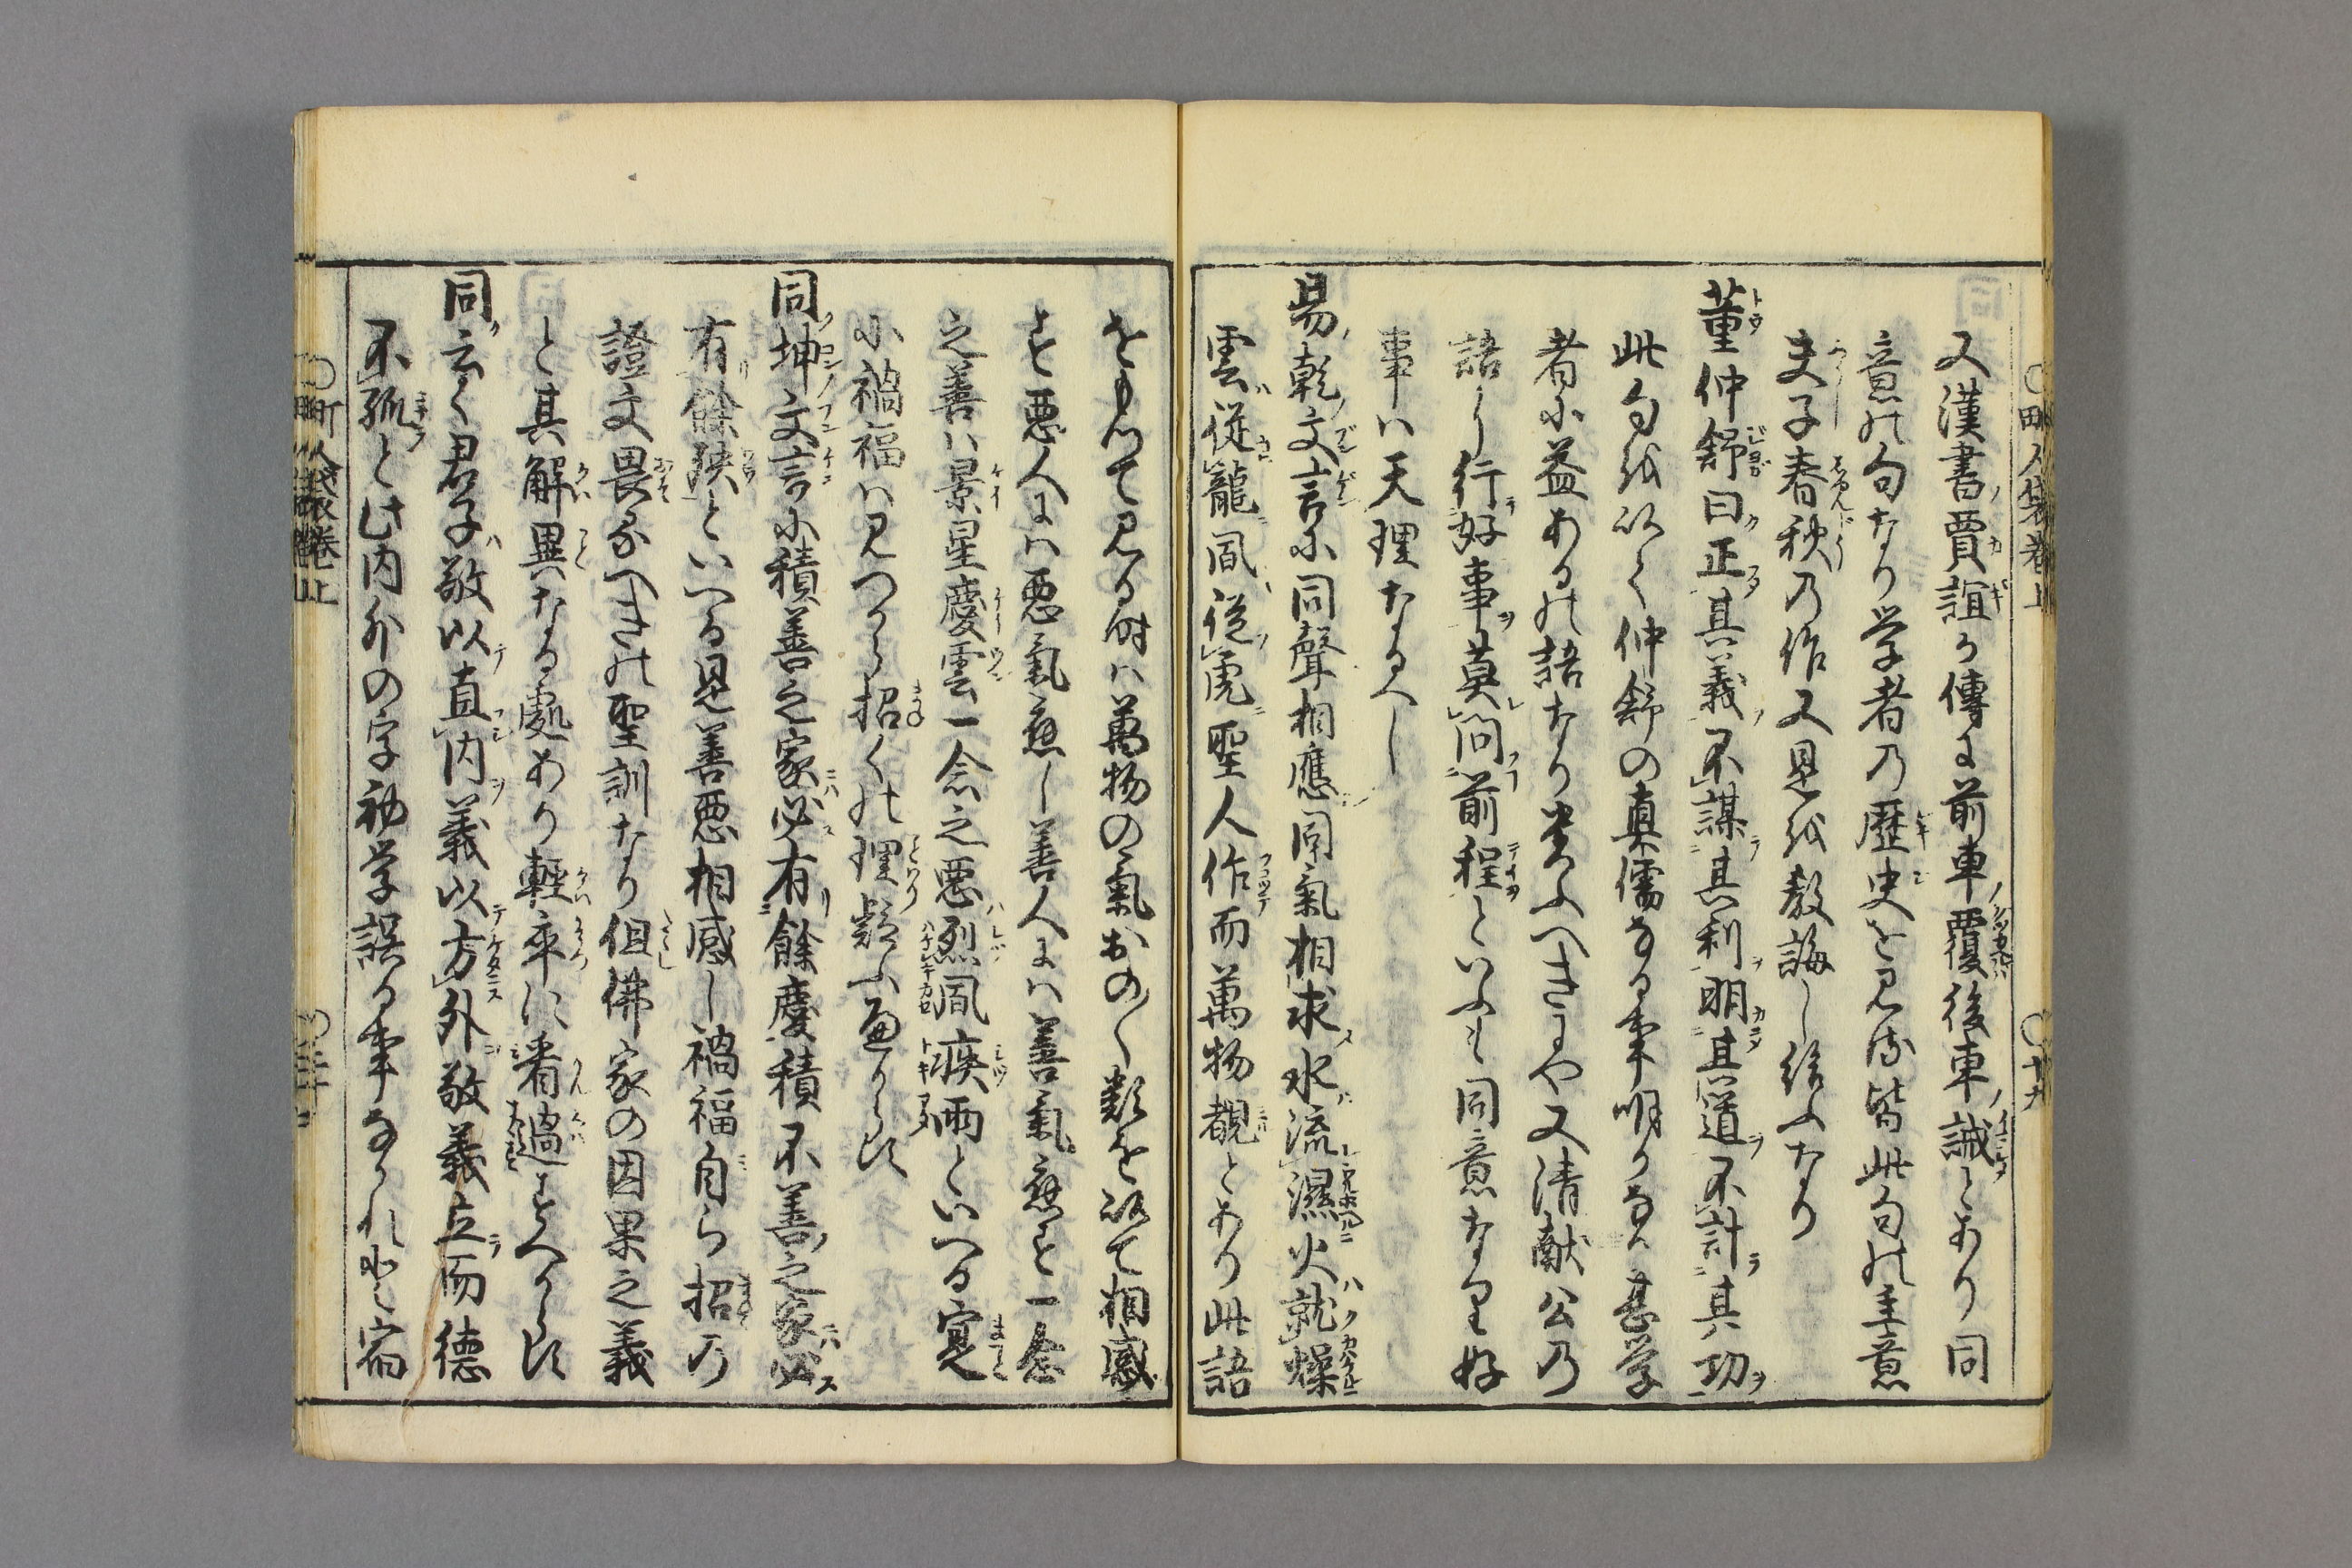 又漢書賈誼か傳に前車覆後車誡とあり同
意の句なり学者の歴史を見は皆此句の主意
夫子春秋の作又是を教誨し給ふなり
董仲舒曰正其義不謀其利明其道不計其功
此句を以て仲舒の真儒なる事明かなり甚学
者に益あるの語なり貴ふへきにや又清献公の
語に行好事莫問前程といふも同意なりと好
事は天理なるへし
易乾文言に同聲相應同氣相求水流濕火就燥
雲從龍風從虎聖人作而萬物覩とあり此語
をもつて見る時は萬物の氣おの〱類を以て相感
す悪人には悪氣應し善人には善氣應す一念
之善は景星慶雲一念之悪烈風疾雨といへる寔
に禍福は見つから招くの理疑ふへからす
同坤文言に積善之家必有餘慶積不善之家必
有餘殃といへる是善悪相感し禍福自ら招の
證文畏るへきの聖訓なり但佛家の因果之義
と其解異なる處あり輕卒に看過すへからす
同云く君子敬以直内義以方外敬義立而徳
不孤と此内外の字初学誤る事なかれと窩
町人袋巻上
十九
町人袋巻上
二十